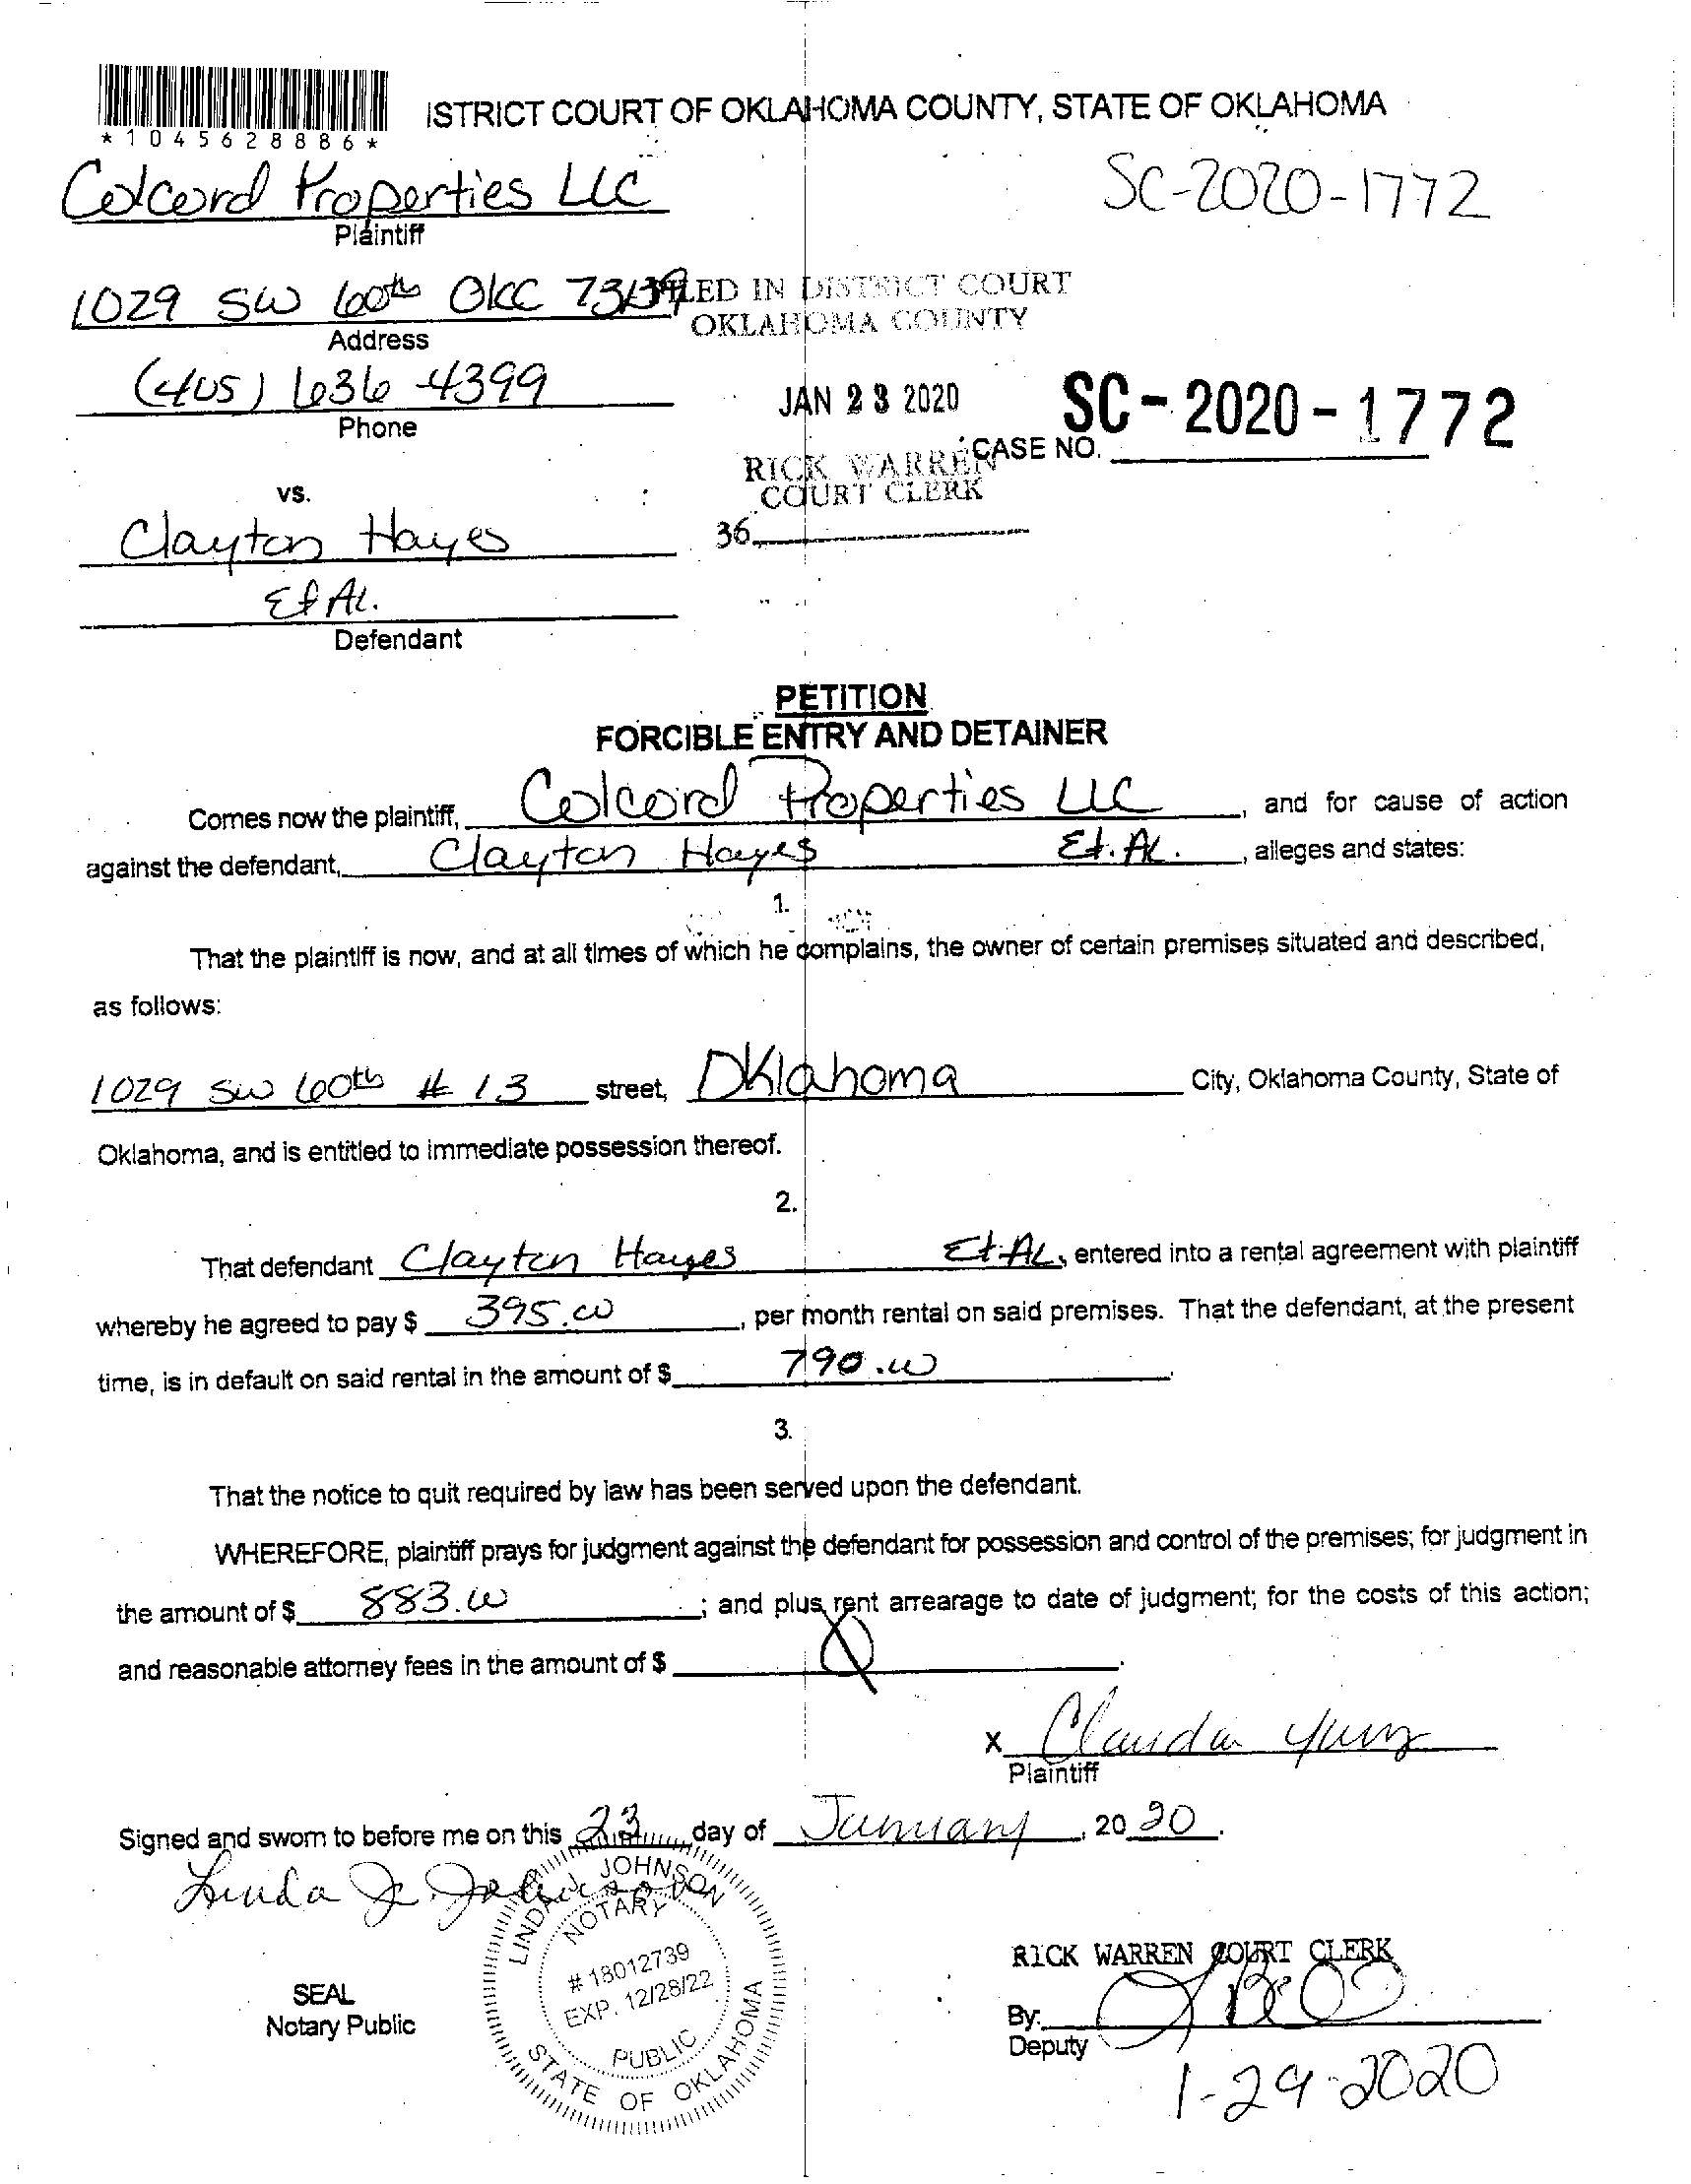 *1045628886*
ISTRICT COURT OF OKLAHOMA COUNTY, STATE OF OKLAHOMA
Colcord Properties LLC
SC-2020-1772
Plaintiff
1029 SW 60th OKC 73139
FILED IN DISTRICT COURT
OKLAHOMA COUNTY
Address
(405) 636-4399
Phone
JAN 23 2020
SC-2020-1772
CASE NO.
RICK WARREN
COURT CLERK
vs.
36
Clayton Hayes
Et AL.
Defendant
PETITION
FORCIBLE ENTRY AND DETAINER
Comes now the plaintiff, Colcord Properties LLC, and for cause of action
against the defendant, Clayton Hayes Et. AL., alleges and states:
1.
That the plaintiff is now, and at all times of which he complains, the owner of certain premises situated and described,
as follows:
1029 SW 60th # 13 street, Oklahoma City, Oklahoma County, State of
Oklahoma, and is entitled to immediate possession thereof.
2.
That defendant Clayton Hayes Et AL, entered into a rental agreement with plaintiff
whereby he agreed to pay $ 395.00, per month rental on said premises. That the defendant, at the present
time, is in default on said rental in the amount of $ 790.00.
3.
That the notice to quit required by law has been served upon the defendant.
WHEREFORE, plaintiff prays for judgment against the defendant for possession and control of the premises; for judgment in
the amount of $ 883.00; and plus rent arrearage to date of judgment; for the costs of this action;
and reasonable attorney fees in the amount of $
X Claudia
Plaintiff
Signed and sworn to before me on this 23 day of January, 2020.
Linda J. Johnson
LINDA J. JOHNSON
NOTARY
# 18012739
EXP. 12/28/22
PUBLIC
STATE OF OKLAHOMA
SEAL
Notary Public
RICK WARREN COURT CLERK
By:
Deputy
1-29-2020